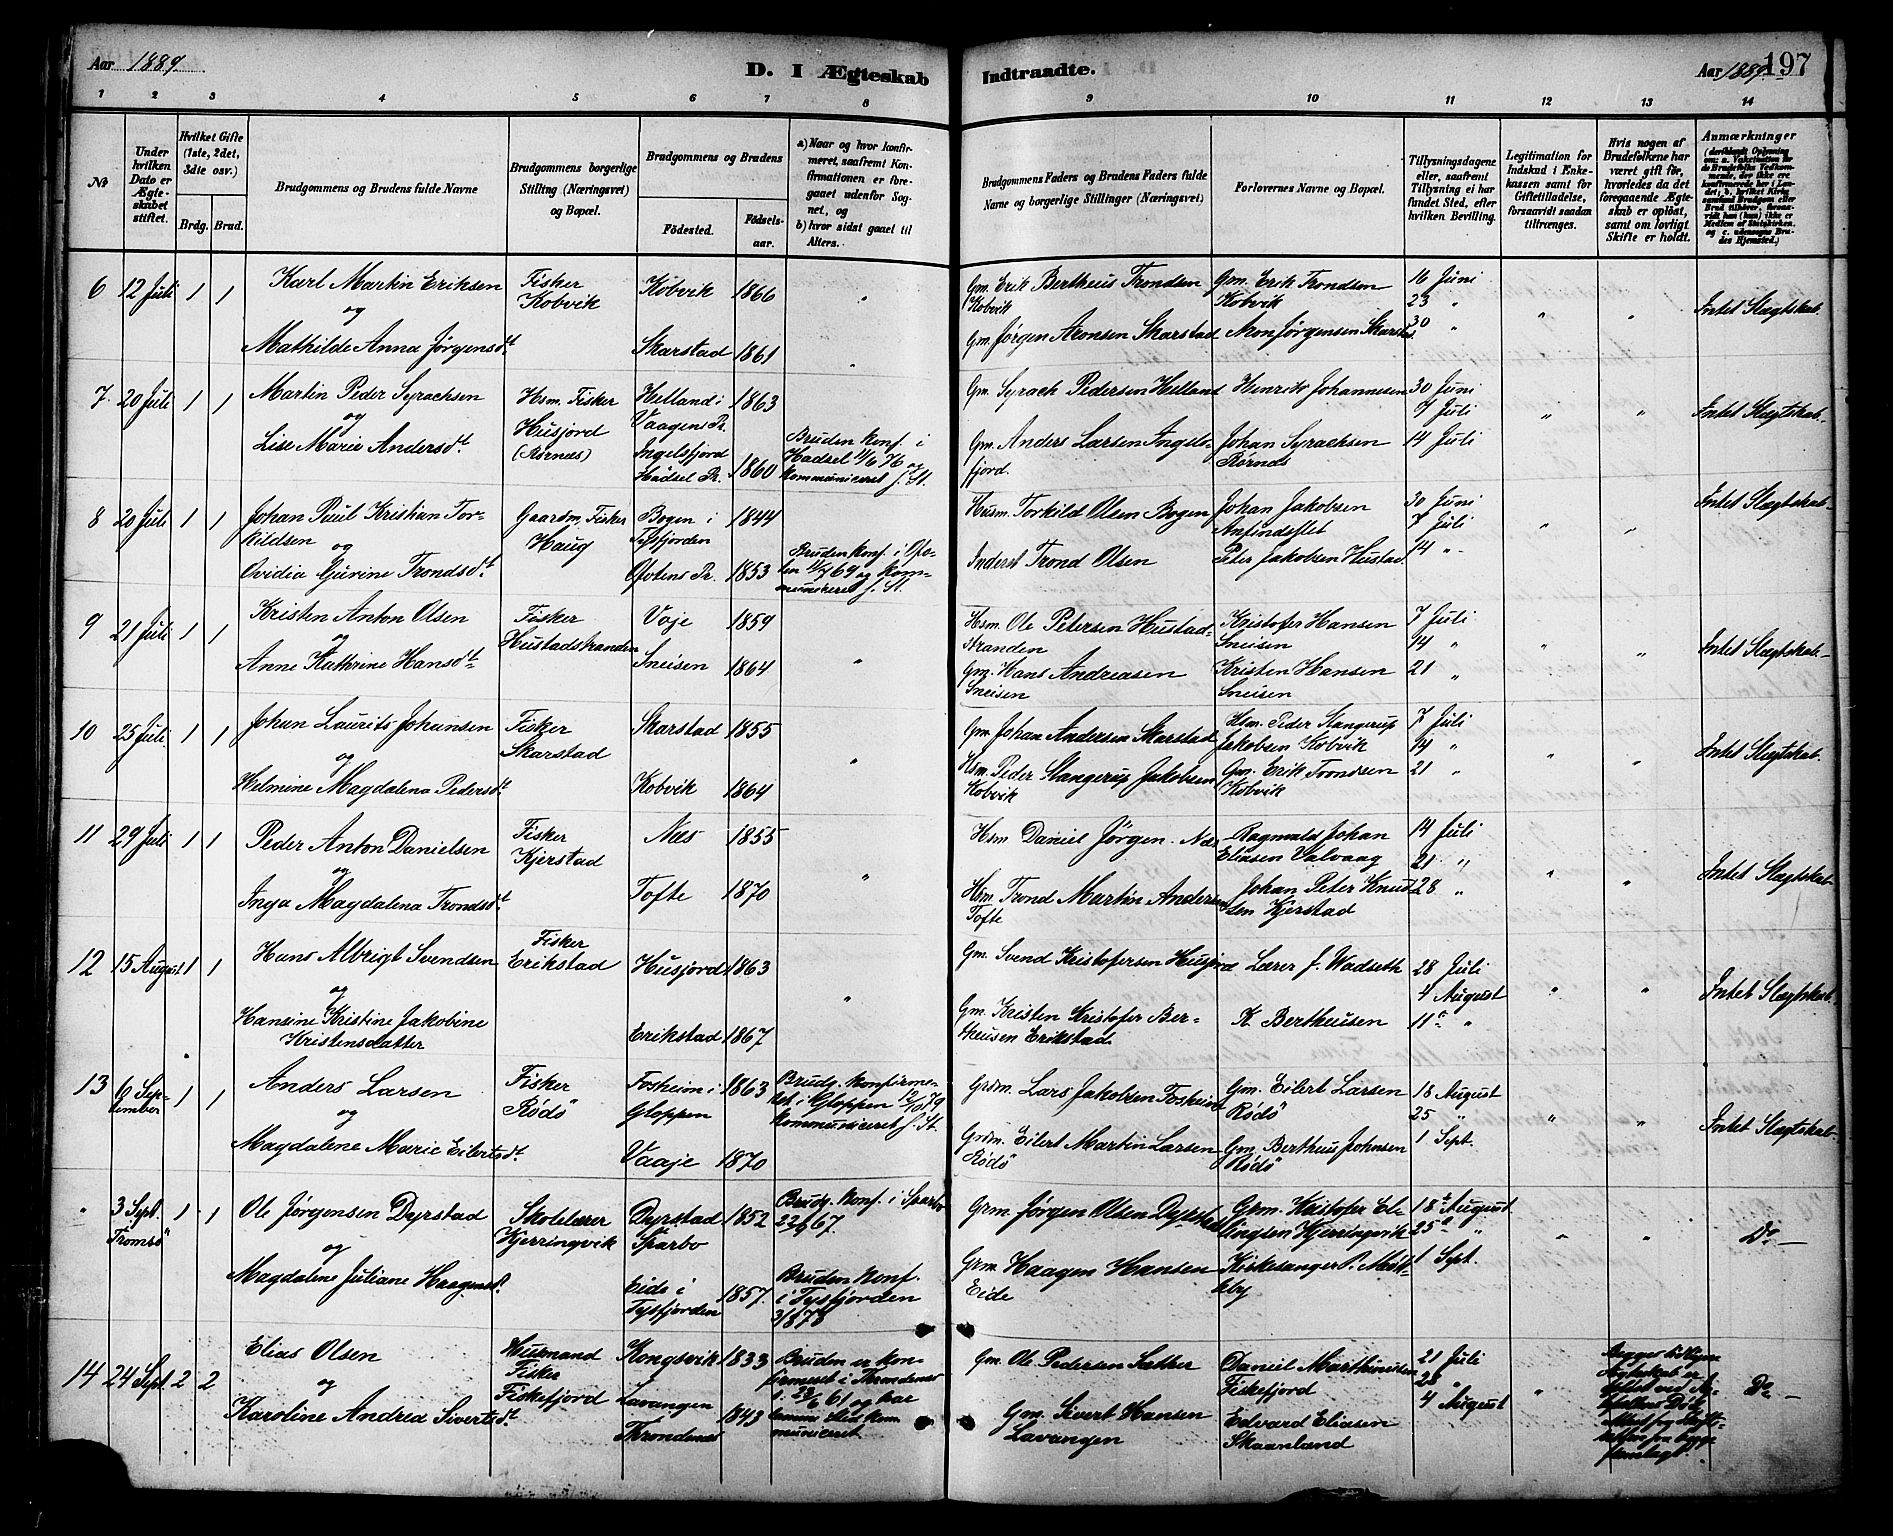 Aar 1889
D. I Ægteskab Indtraadte.
Aar 1889 197
1 2 3 4 5 6 7 8 9 10 11 12 13 14
№
Under hvilken Dato er Ægteskabet stiftet.
Hvilket Gifte (1ste, 2det, 3die osv.)
Brdg. Brud.
Brudgommens og Brudens fulde Navne
Brudgommens borgerlige Stilling (Næringsvei) og Bopæl.
Brudgommens og Brudens
Födested. Födselsaar.
a) Naar og hvor konfirmeret, saafremt Konfirmationen er foregaaet udenfor Sognet, og
b) hvor sidst gaaet til Alters.
Brudgommens Faders og Brudens Faders fulde Navne og borgerlige Stillinger (Næringsvei)
Forlovernes Navne og Bopæl.
Tillysningsdagene eller, saafremt Tillysning ei har fundet Sted, efter hvilken Bevilling.
Legitimation for Indskud i Enkekassen samt for Giftetilladelse, forsaavidt saadan tiltrænges.
Hvis nogen af Brudefolkene har været gift för, hvorledes da det foregaaende Ægteskab er oplöst, samt om lovligt Skifte er holdt.
Anmærkninger
6 12 Juli 1 1 Karl Martin Eriksen Fisker Kobvik Kobvik 1866 " Gm. Erik Bertheus Trondsen Kobvik Gm. Erik Trondsen Kobvik 16 Juni 23 " 30 " " " Intet Slægtskab.
og
Mathilde Anna Jørgensdt. Skarstad 1861 " Gm. Jørgen Aronsen Skarstad Mon Jørgensen Skarstad
7. 20 Juli 1 1 Martin Peder Syrachsen Hsm. Fisker Husjord (Rørnæs) Helland i Vaagens Pr. 1863 Gm. Syrach Pedersen Helland Henrik Johannesen 30 Juni 7 Juli 14 Juli " " Intet Slægtskab.
og
Lise Marie Andersdt. Ingelsfjord Hadsel Pr. 1860 Bruden konf. i Hadsel 11/6 76 og kommuniceret f. St. Gm. Anders Larsen Ingelsfjord. Johan Syrachsen Rørnæs
8 20 Juli 1 1 Johan Paul Kristian Torkildsen Gaardm. Fisker Haug Bogen i Tysfjorden 1844 Husm. Torkild Olsen Bogen Johan Jakobsen 30 Juni 7 Juli 14 " " " Intet Slægtskab.
og
Ovidia Gurine Trondsdt. Ofotens Pr. 1853 Bruden konf. i Ofoten 69 og kommuniceret f. St. Inderst Trond Olsen Peter Jakobsen Hustad
9 21 Juli 1 1 Kristen Anton Olsen Fisker Hustadstranden Vaje 1859 " Hsm. Ole Petersen Hustadstranden Kristofer Hansen Sneisen 7 Juli 14 " 21 " " " Intet Slægtskab.
og
Anne Kathrine Hansdt. Sneisen 1864 Gm. Hans Andreasen Sneisen Kristen Hansen Sneisen
10 25 Juli 1 1 Johan Laurits Johansen Fisker Skarstad Skarstad 1855 " Gm. Johan Andersen Skarstad Hsm. Peder Slangerup Jakobsen Kobvik 7 Juli 14 " 21 " " " Intet Slægtskab.
og
Helmine Magdalena Pedersdt. Kobvik 1864 Hsm. Peder Slangerup Jakobsen Kobvik Gm. Erik Trondsen Kobvik
11 29 Juli 1 1 Peder Anton Danielsen Fisker Kjerstad Næs 1855 " Hsm Daniel Jørgen. Næs Ragnvald Johan Eliasen Valvaag 14 Juli 21 " 28 " " " Intet Slægtskab.
og
Inga Magdalena Trondsdt. Tofte 1870 Hsm. Trond Martin Andersen Tofte Johan Peter Knudsen Kjerstad
12 15 August 1 1 Hans Albrigt Svendsen Fisker Erikstad Husjord 1863 " Gm. Svend Kristofersen Husjord Lærer J. Wadseth 28 Juli 4 August 11 " " " Intet Slægtskab.
og
Hansine Kristine Jakobine Kristensdatter Erikstad 1867 Gm. Kristen Kristofer Bertheusen Erikstad K. Bertheusen
13 6 September 1 1 Anders Larsen Fisker Rödö Foskeim i Gloppen 1863 Brudg. konfirmeret i Gloppen 12/10 79 kommuniceret f. St. Grdm. Lars Jakobsen Foskeim Gm. Eilert Larsen Rödö 18 August 25 " 1 Sept. " " Intet Slægtskab.
og
Magdalene Marie Eilertsdt. Vaaje 1870 Grdm. Eilert Martin Larsen Rödö Gm. Bertheus Johnsen Rödö
" 3 Sept. Tromsö 1 1 Ole Jørgensen Dyrstad Skolelærer Kjerringvik Dyrstad Sparbo 1852 Brudg. konf. i Sparbo 22/6 67. Grm. Jørgen Olsen Dyrstad Grm. Kristofer Ellingsen Kjerringvik 18 August 25 " 1 Sept. " " Do
og
Magdalene Juliane Haagensdt. Eide i Tysfjorden 1857. Bruden konf. i Tysfjorden 3/8 73 Grm. Haagen Hansen Eide Kirkesanger P. Mökleby
14 24 Sept. 2 2 Elias Olsen Husmand Fisker Fiskefjord Kongsvik 1833 Gm. Ole Pedersen Sætter Daniel Marthinusen Fiskefjord 21 Juli 28 " 4 August " Do
og
Karoline Andrea Sivertsdt. Lavangen Throndenes 1843 Bruden er konfirmeret i Throndenes 61 og har kommuniceret Gm. Sivert Hansen Lavangen Edvard Eliasen Skaanland